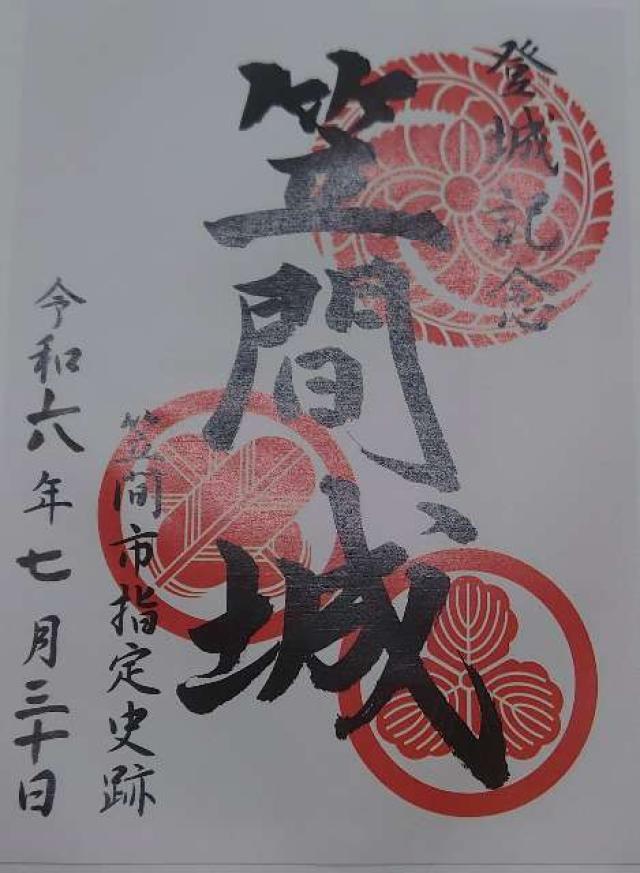 登城記念
笠間城
笠間市指定史跡
令和六年七月三十日